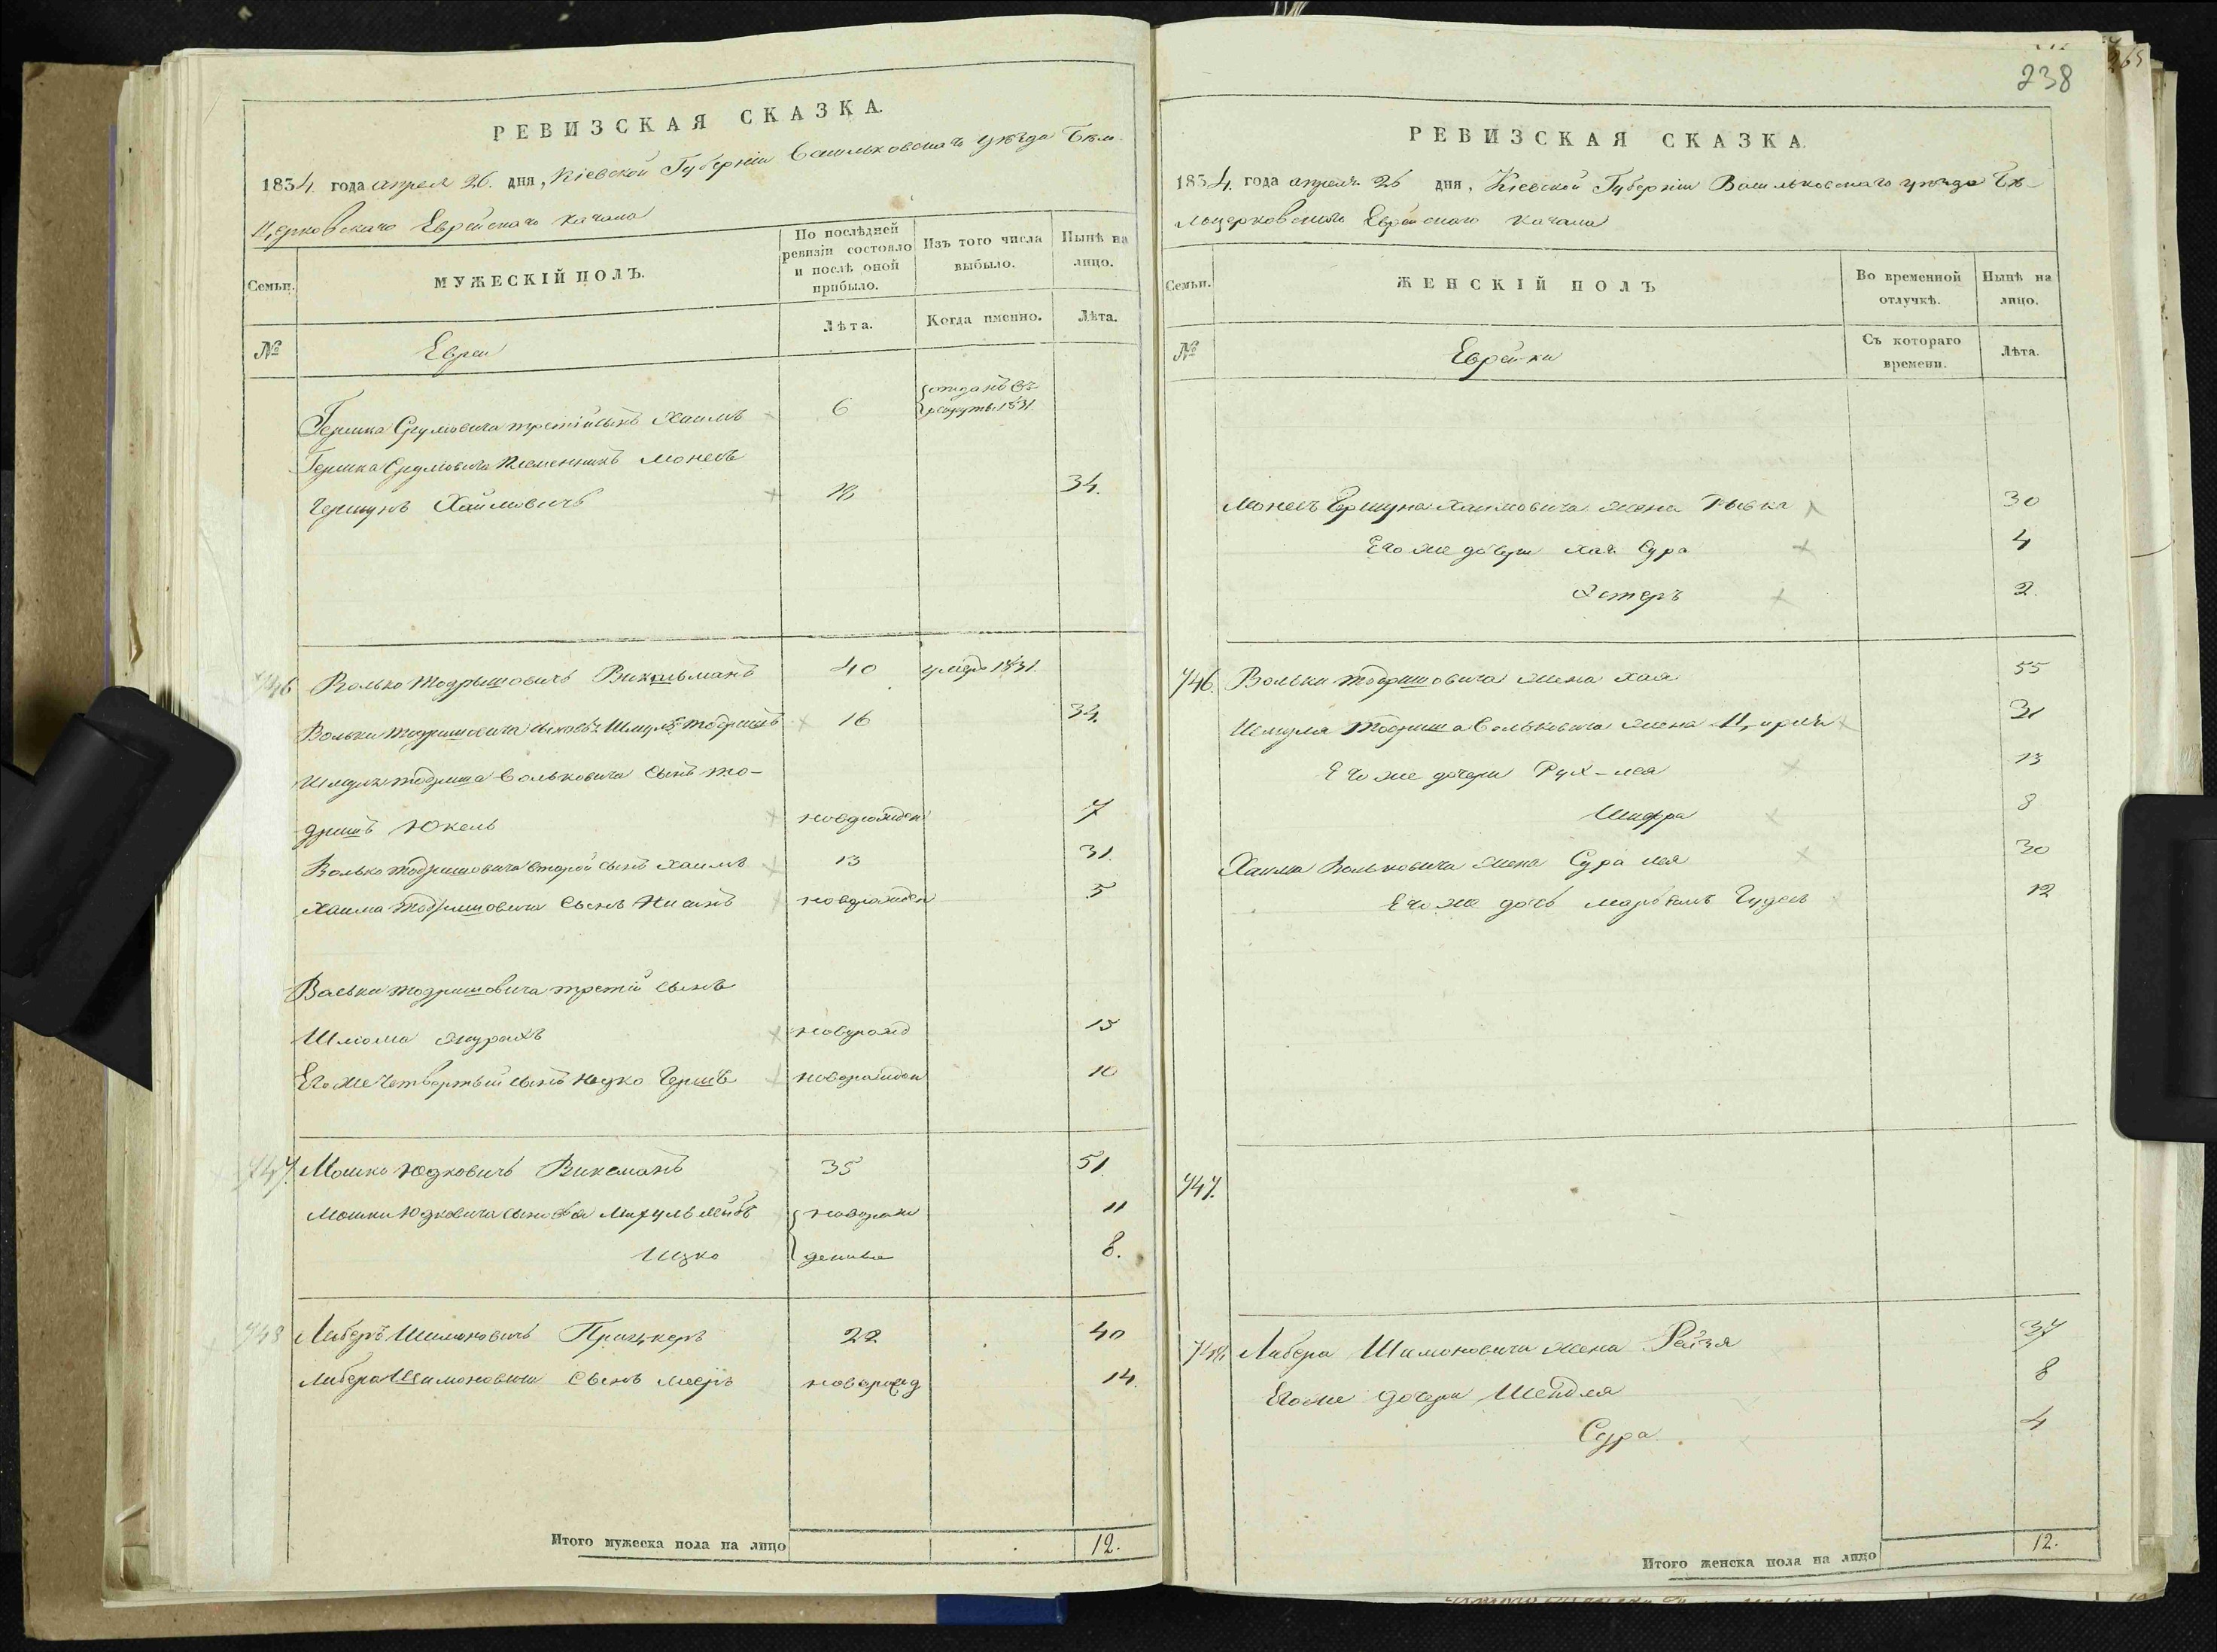 РЕВИЗСКАЯ СКАЗКА.
1834 года апреля 26. дня, Кіевской Губерніи Васильковскаго уѣзда Бѣло-
Церковскаго Еврейскаго Кагала
Семьи.
МУЖЕСКІЙ ПОЛЪ.
По послѣдней ревизіи состояло и послѣ оной прибыло.
Изъ того числа выбыло.
Нынѣ на лицо.
№
Евреи
Лѣта.
Когда именно.
Лѣта.
Гершка Сруліовича третій сынъ Хаимъ 6 отданъ въ рекруты 1831
Гершка Сруліовича племенникъ Монесъ
Гершунъ Хаимовичъ 18 34.
746 Волько Тодрышовичъ Викельманъ 40 умеръ 1831.
Вольки Тодришовича сыновья Шмуль Тодришъ 16 34.
Шмуля Тодриша Вольковича сынъ То-
дришъ Юкель новорожден 7
Волько Тодришовича второй сынъ Хаимъ 13 31.
Хаима Тодришовича сынъ Нисинъ новорожден 5
Вольки Тодришовича третій сынъ
Шлюма новорожд 15
Его же четвертый сынъ Ицко Гершъ новорожден 10
747. Мошко Юдковичъ Виксманъ 35 51.
Мошки Юдковича сыновья Лейбъ новорож 11
Ицко денные 8.
748 Либеръ Шимоновичъ Прицкеръ 22 40
Либера Шимоновича сынъ Мееръ новорожд 14.
Итого мужеска пола на лицо 12.
238
265
РЕВИЗСКАЯ СКАЗКА.
1834 года апреля 26 дня, Кіевской Губерніи Васильковскаго уѣзда Бѣ-
лоцерковскаго Еврейскаго Кагала
Семьи.
ЖЕНСКІЙ ПОЛЪ
Во временной отлучкѣ.
Нынѣ на лицо.
№
Еврейки
Съ котораго времени.
Лѣта.
Монесъ Гершуна Хаимовича жена Рывка 30
Его же дочери Хая Сура 4
Эстеръ 2.
746. Вольки Тодришовича жена Хая 55
Шмуля Тодриша Вольковича жена Цирля 31
Его же дочери Рух-лея 13
Шифра 8
Хаима Вольковича жена Сура Лея 30
Его же дочь Гудес 12
747.
748. Либера Шимоновича жена Рейзя 37
Его же дочери Шейдля 8
Сура 4
Итого женска пола на лицо 12.